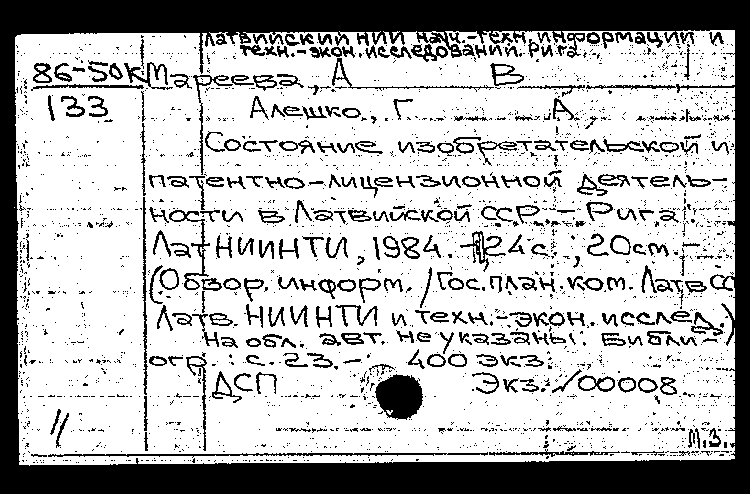 Латвийский НИИ науч.-техн. информации и
техн.-экон. исследований. Рига
86-50К Мареева, А В
133 Алешко, Г А
Состояние изобретательской и
патентно-лицензионной деятель-
ности в Латвийской ССР. - Рига:
ЛатНИИНТИ, 1984. - 24 с.; 20 см. -
(Обзор. информ. / Гос. план. ком. Латв СС
Латв. НИИНТИ и техн.-экон. исслед.)
На обл. авт. не указаны. Библи-
огр.: с. 23. - 400 экз.
ДСП Экз. √00008
//
М.З.